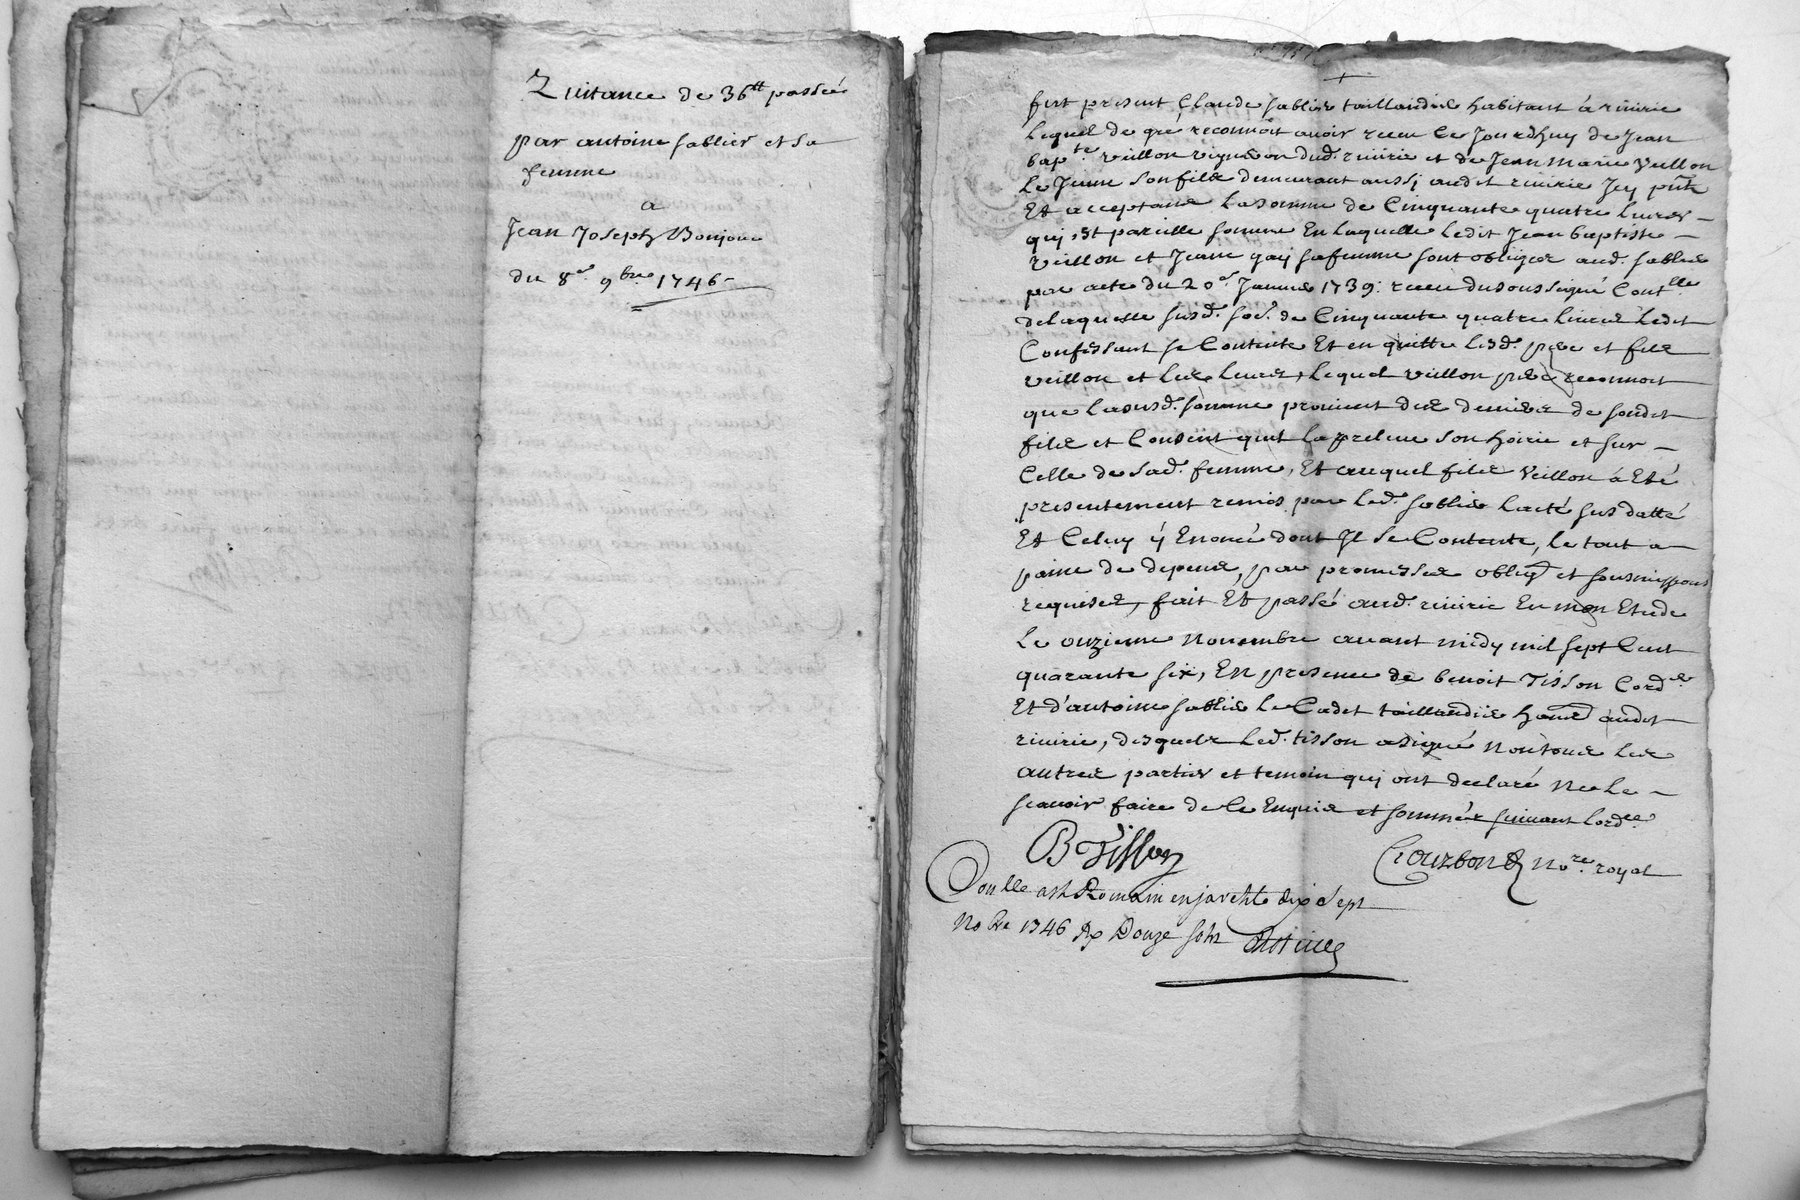 Quitance de 36ᵗᵗ passée
par antoine sablier et sa
femme
a
Jean Joseph Bonjour
du 8ᵉ. 9bre. 1746
fut present Claude sablier taillandier habitant à riverie
lequel de gré reconnoit avoir receu ce Jourdhuy de Jean
bapᵗᵉ. veillon vigneron dud. riverie et de Jean Marie Veillon
Le Jeune son fils demeurant aussi audit riverie Icy pnt
Et acceptant la somme de Cinquante quatre Livres
qui est pareille somme En laquelle ledit Jean baptiste
veillon et Jeanne gay sa femme sont obliges aud. sablier
par acte du 20ᵉ. Janvier 1739. receu du soussigné Contˡˡᵉ
de laquelle susd. soe. de Cinquante quatre livres ledit
Confessant se Contente Et en quitte lesd. pere et fils
veillon et les leurs, lequel veillon pere reconnoit
que la susd. somme provient des deniers de sondit
fils et Consent quil la preleve son hoirie et sur
Celle de sad. femme, Et auquel fils Veillon à Eté
presentement remis par led. sablier lacte sus datté
Et Celuy y Enoncé dont Il se Contente, le tout a
paine de depens, par promesses oblig et sousmissions
requises, fait Et passé aud. riverie En mon Etude
Le onzieme novembre avant midy mil sept Cent
quarante six, En presence de benoit Tisson Cordʳ
Et d'antoine sablier le Cadet taillandier dudit
riverie, desquels led. tisson a signé non tous les
autres parties et temoin qui ont declaré ne le
scavoir faire de ce Enquis et sommés suivant lordᶜᵉ
B Tisson
Courbon Noʳᵉ. royal
Conᵗˡˡᵉ a st Romain en jarest le dix sept
Nobre 1746 R Douze sols